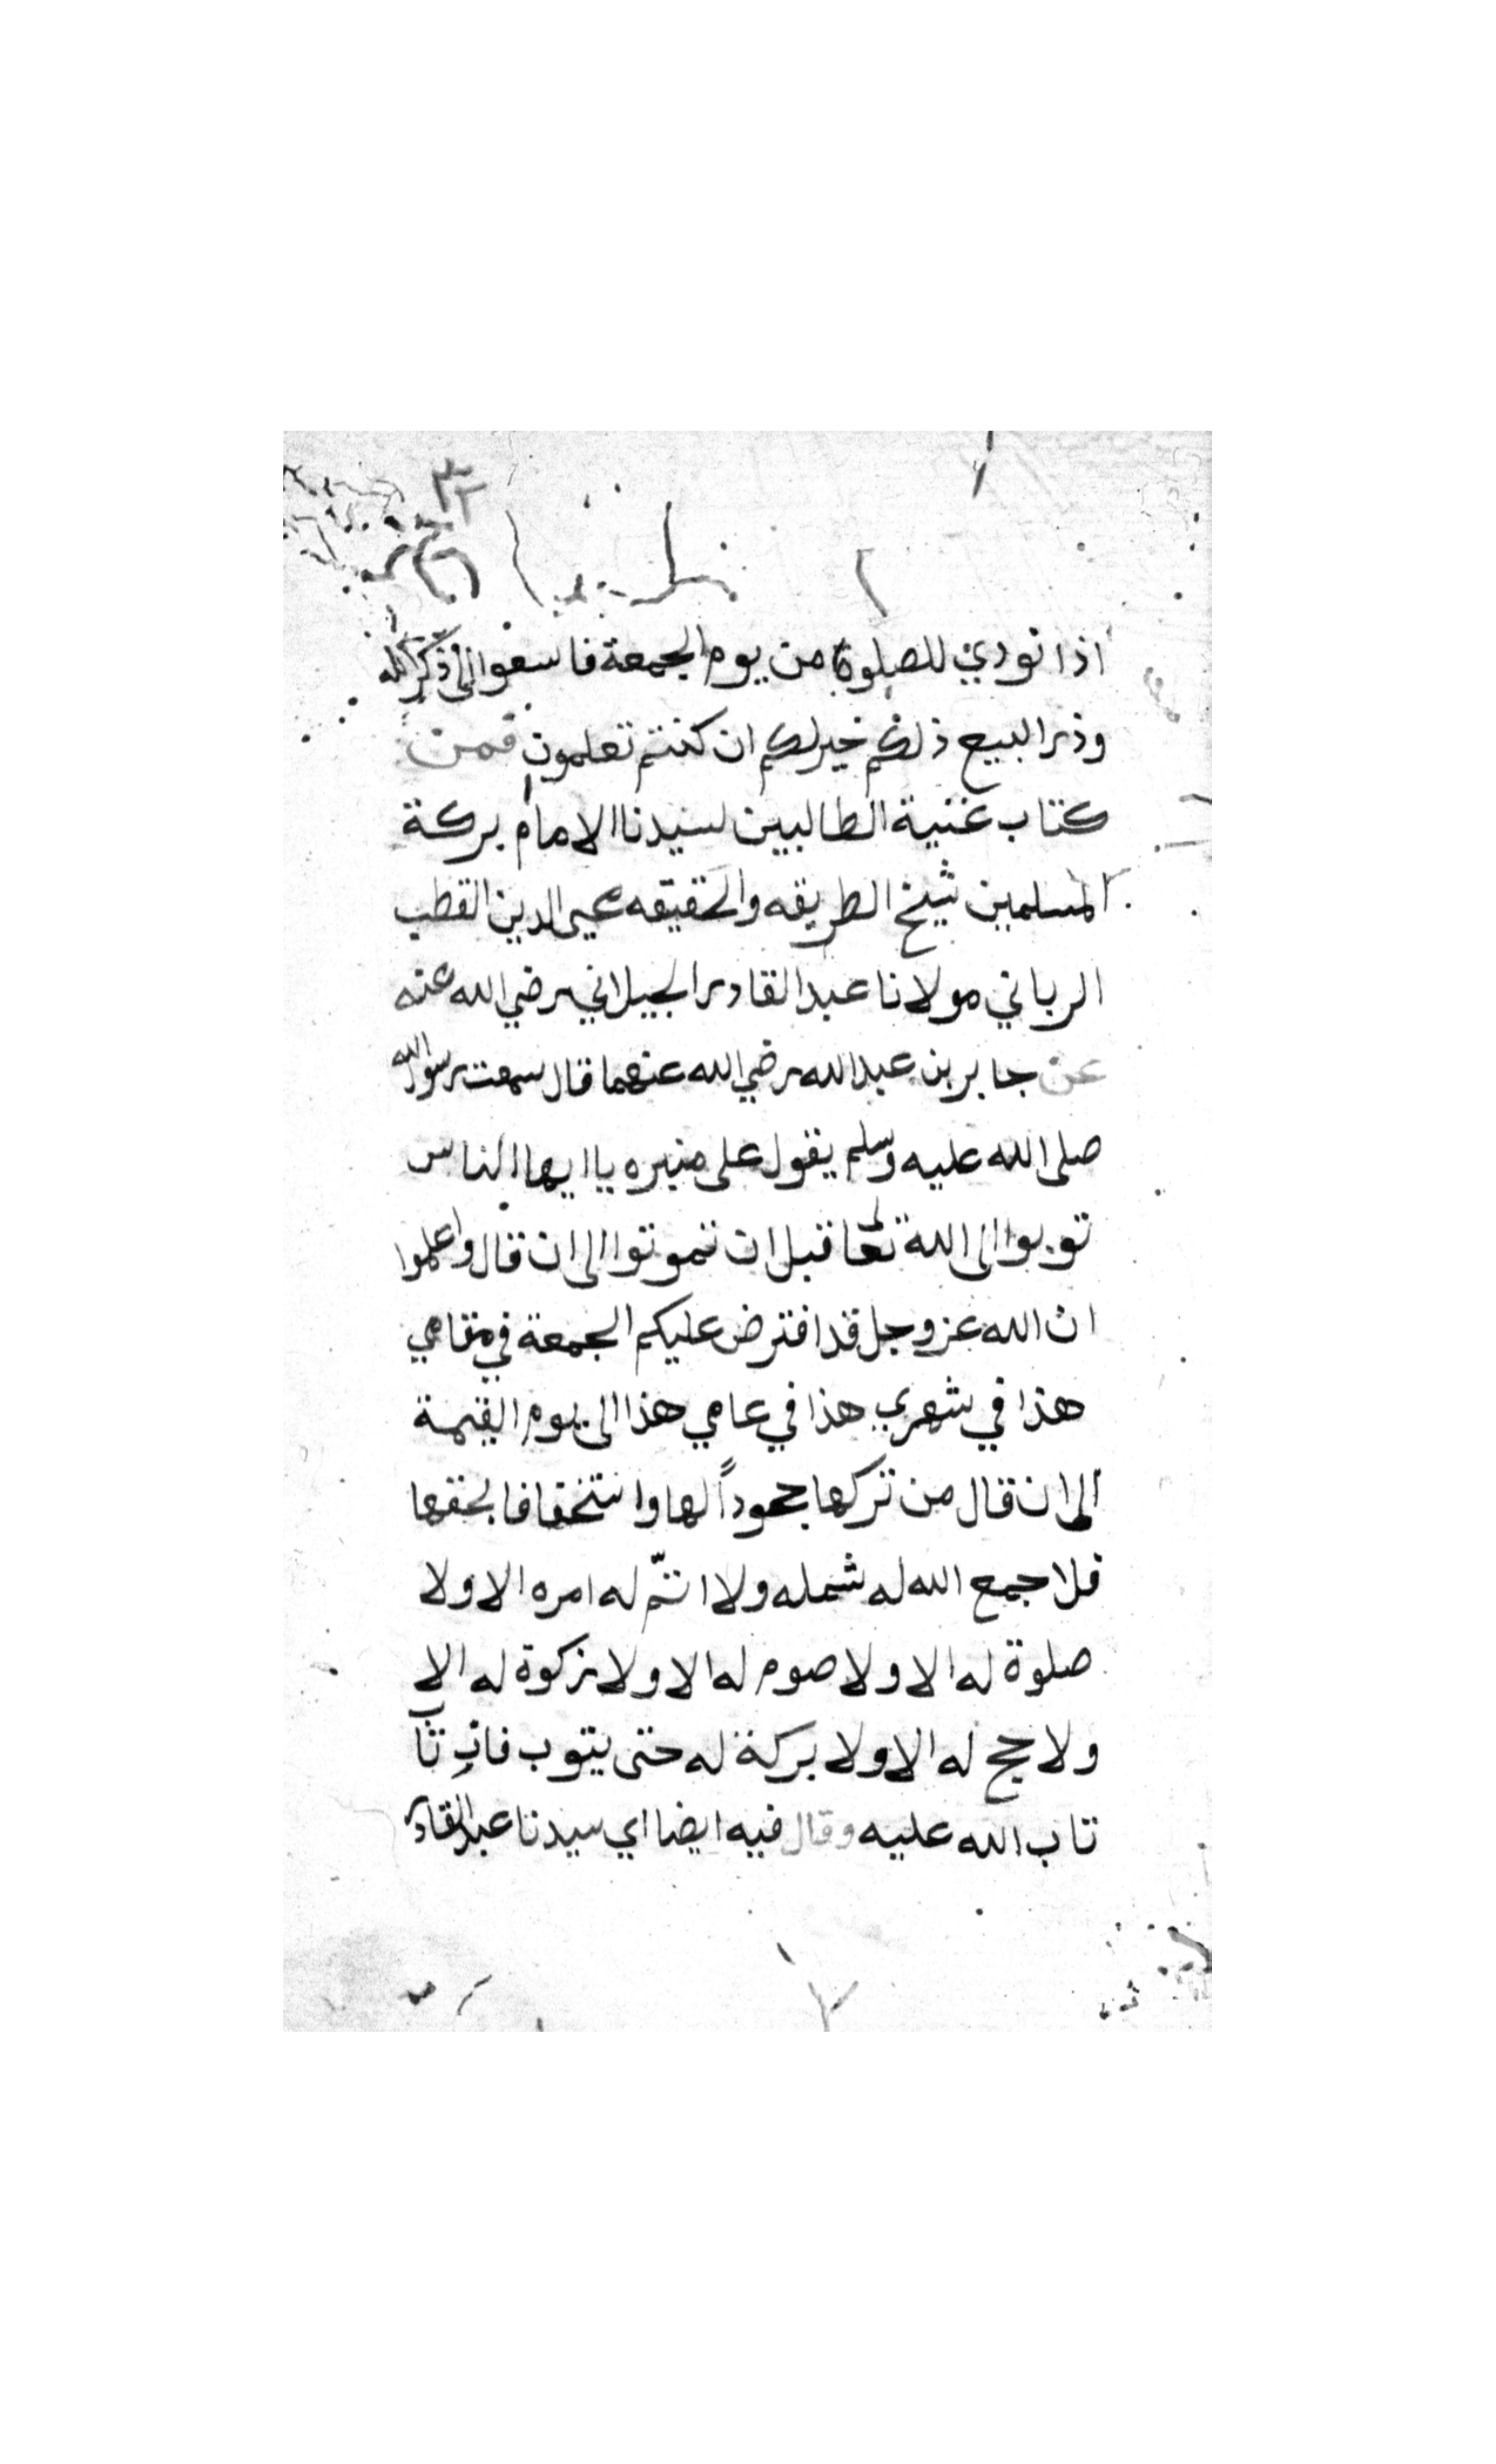 اذا نودي للصلوة من يوم الجمعة فاسعوا الى ذكر الله
وذر البيع ذلكم خير لكم ان كنتم تعلمون فمن
كتاب غنية الطالبين لسيدنا الامام بركة
المسلمين شيخ الطريقه والحقيقه محيى الدين القطب
الرباني مولانا عبد القادر الجيلاني رضي الله عنه
عن جابر بن عبد الله رضي الله عنهما قال سمعت رسول الله
صلى الله عليه وسلم يقول على منبره يا ايها الناس
توبوا الى الله تعالى قبل ان تموتوا الى ان قال واعلموا
ان الله عز وجل قد افترض عليكم الجمعة في مقامي
هذا في شهري هذا في عامي هذا الى يوم القيمة
الى ان قال من تركها جحوداً لها واستخفافا بحقها
فلا جمع الله له شمله ولا اتمّ له امره الا ولا
صلوة له الا ولا صوم له الا ولا زكوة له الا
ولا حج له الا ولا بركة له حتى يتوب فان تاب
تاب الله عليه وقال فيه ايضا اي سيدنا عبد القادر